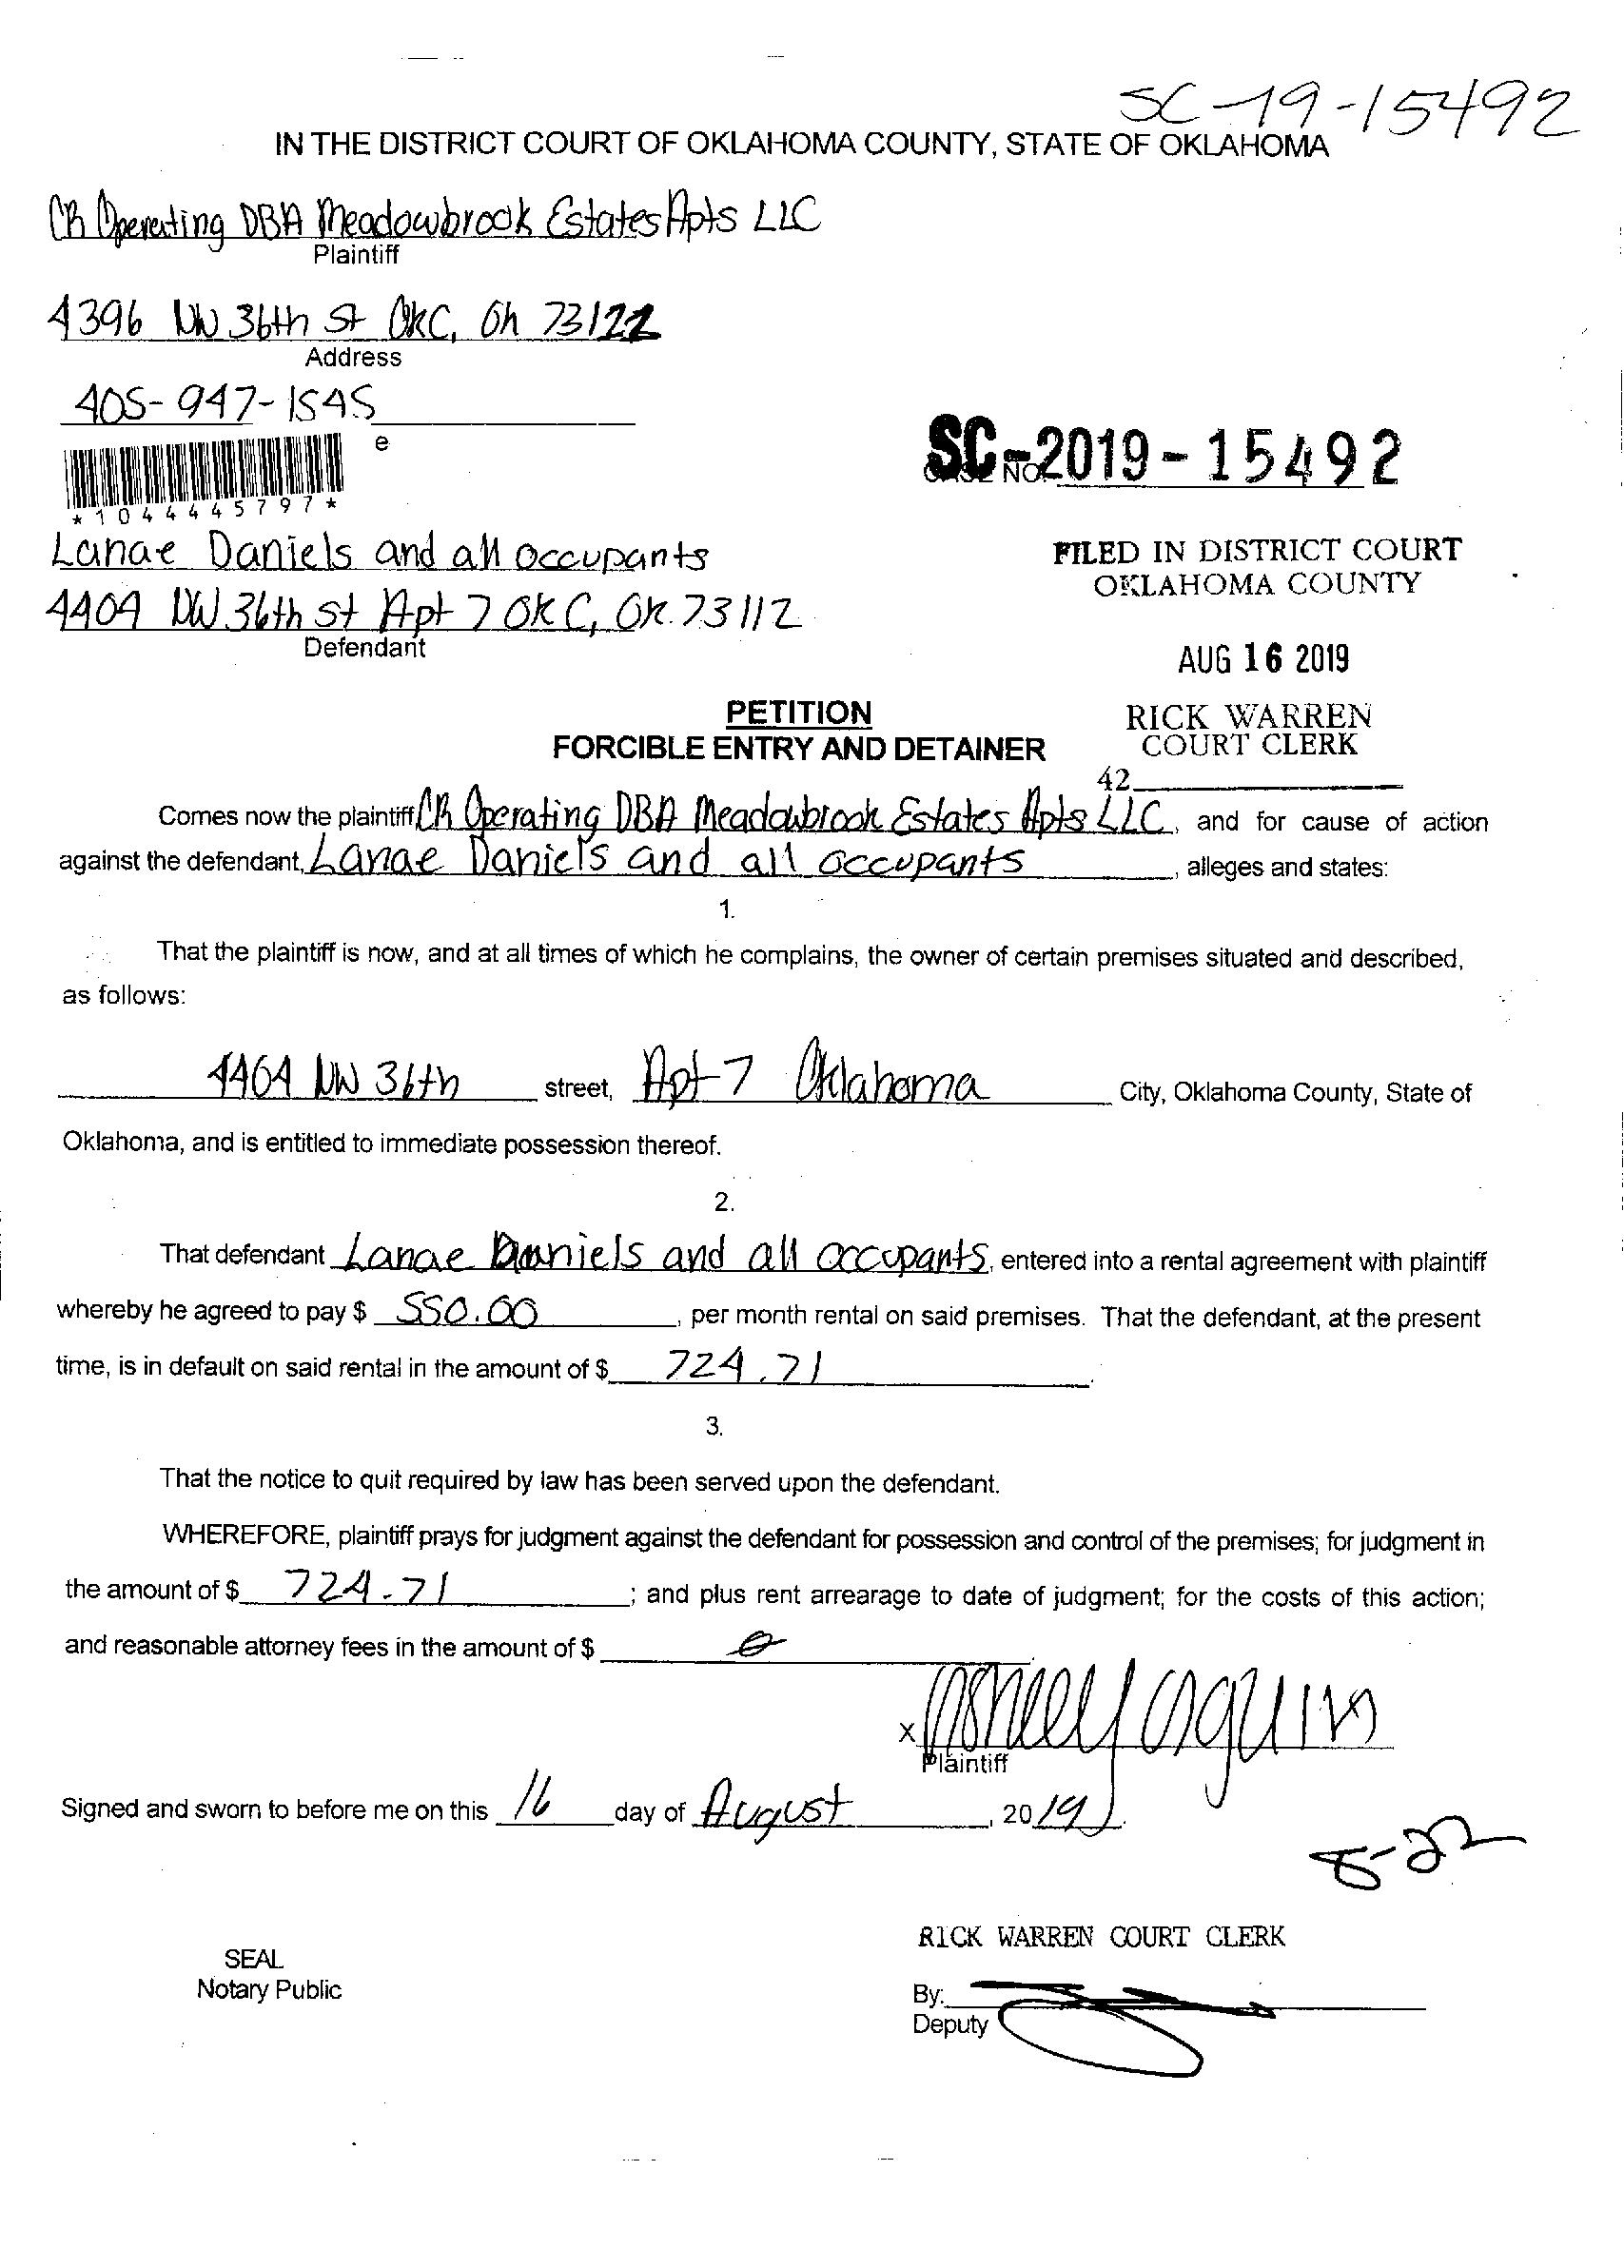 SC-19-15492
IN THE DISTRICT COURT OF OKLAHOMA COUNTY, STATE OF OKLAHOMA
CR Operating DBA Meadowbrook Estates Apts LLC
Plaintiff
4396 NW 36th St OKC, Ok 73122
Address
405-947-1545
e
*1044445797*
SC-2019-15492
NO.
Lanae Daniels and all occupants
4404 NW 36th St Apt 7 OKC, OK 73112
Defendant
FILED IN DISTRICT COURT
OKLAHOMA COUNTY
AUG 16 2019
RICK WARREN
COURT CLERK
42
PETITION
FORCIBLE ENTRY AND DETAINER
Comes now the plaintiff CR Operating DBA Meadowbrook Estates Apts LLC, and for cause of action
against the defendant, Lanae Daniels and all occupants, alleges and states:
1.
That the plaintiff is now, and at all times of which he complains, the owner of certain premises situated and described,
as follows:
4404 NW 36th street, Apt 7 Oklahoma City, Oklahoma County, State of
Oklahoma, and is entitled to immediate possession thereof.
2.
That defendant Lanae Daniels and all occupants, entered into a rental agreement with plaintiff
whereby he agreed to pay $ 550.00, per month rental on said premises. That the defendant, at the present
time, is in default on said rental in the amount of $ 724.71.
3.
That the notice to quit required by law has been served upon the defendant.
WHEREFORE, plaintiff prays for judgment against the defendant for possession and control of the premises; for judgment in
the amount of $ 724.71; and plus rent arrearage to date of judgment; for the costs of this action;
and reasonable attorney fees in the amount of $ 0
x
Plaintiff
Signed and sworn to before me on this 16 day of August, 2019.
8-22
RICK WARREN COURT CLERK
SEAL
Notary Public
By:
Deputy